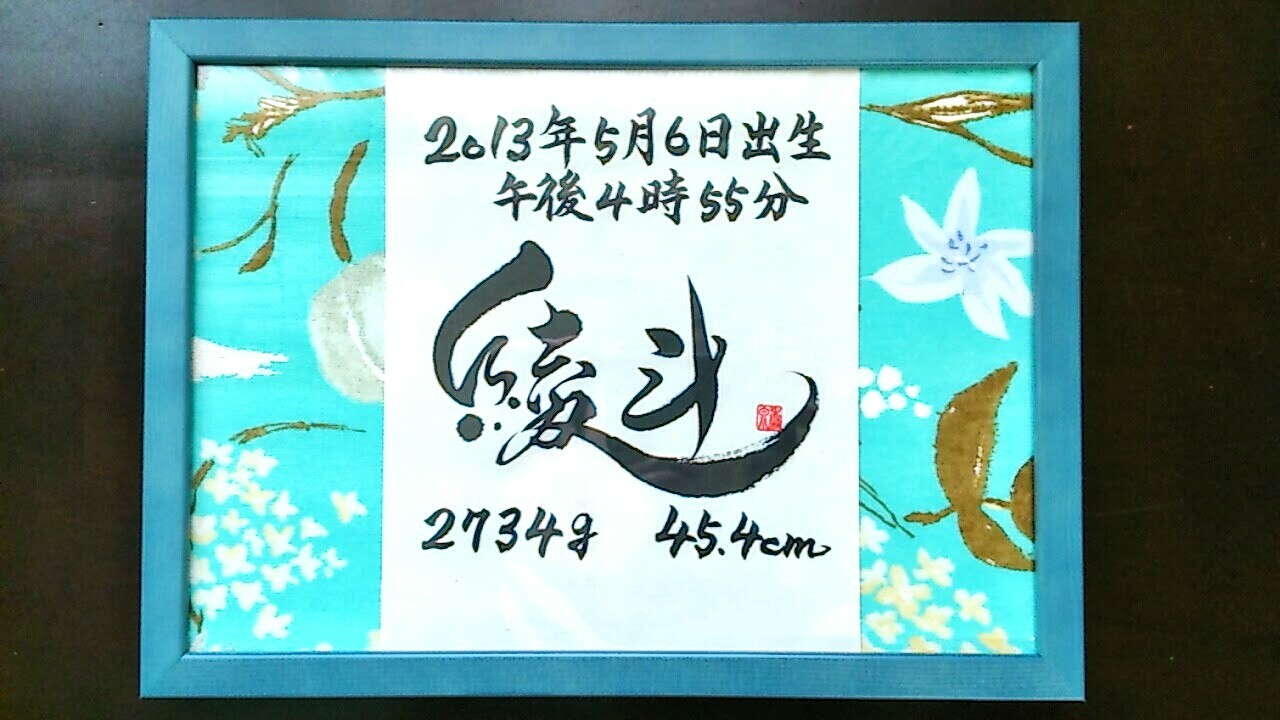 2013年5月6日出生
午後4時55分
綾斗
2734g 45.4cm